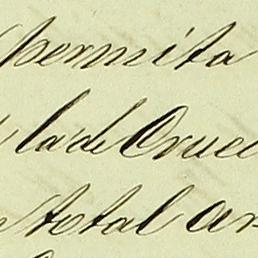 permita
la de Cruce
total an